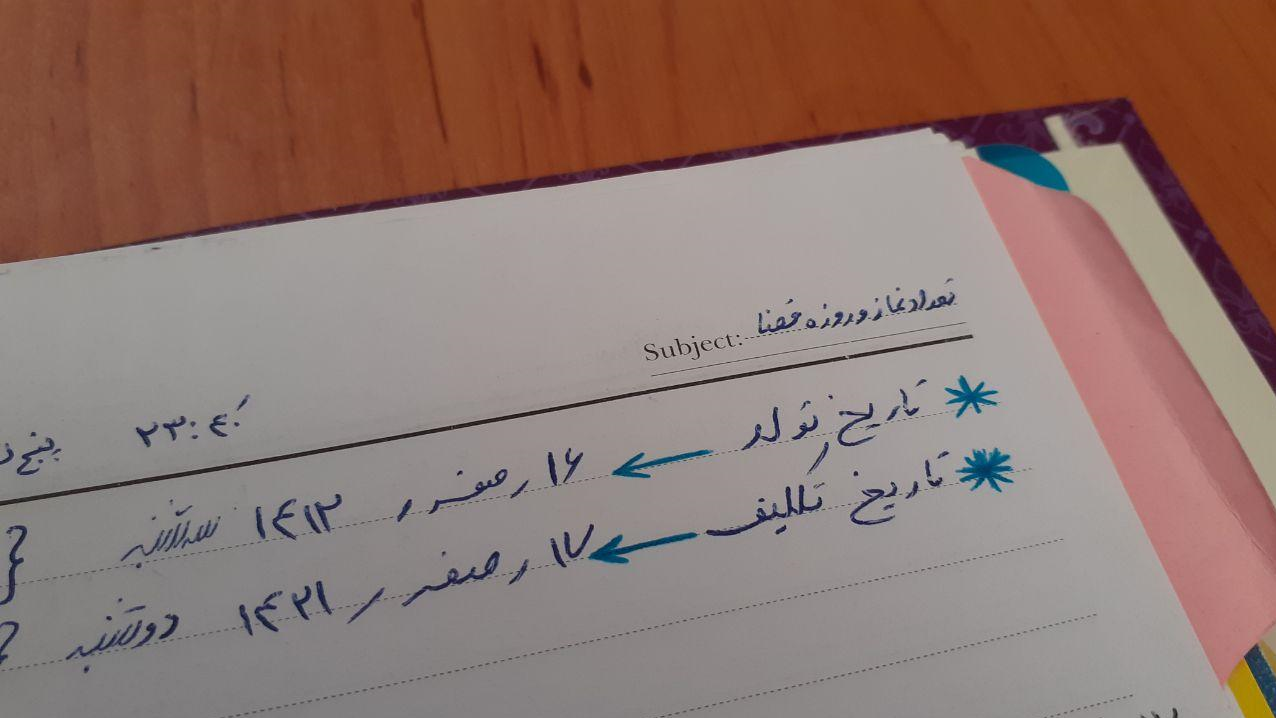 Subject: تعداد نماز و روزه قضا
۲۳:۴۰
* تاریخ تولد ← ۱۶ / صفر / ۱۴۱۲ سه‌شنبه
* تاریخ تکلیف ← ۱۷ / صفر / ۱۴۲۱ دوشنبه